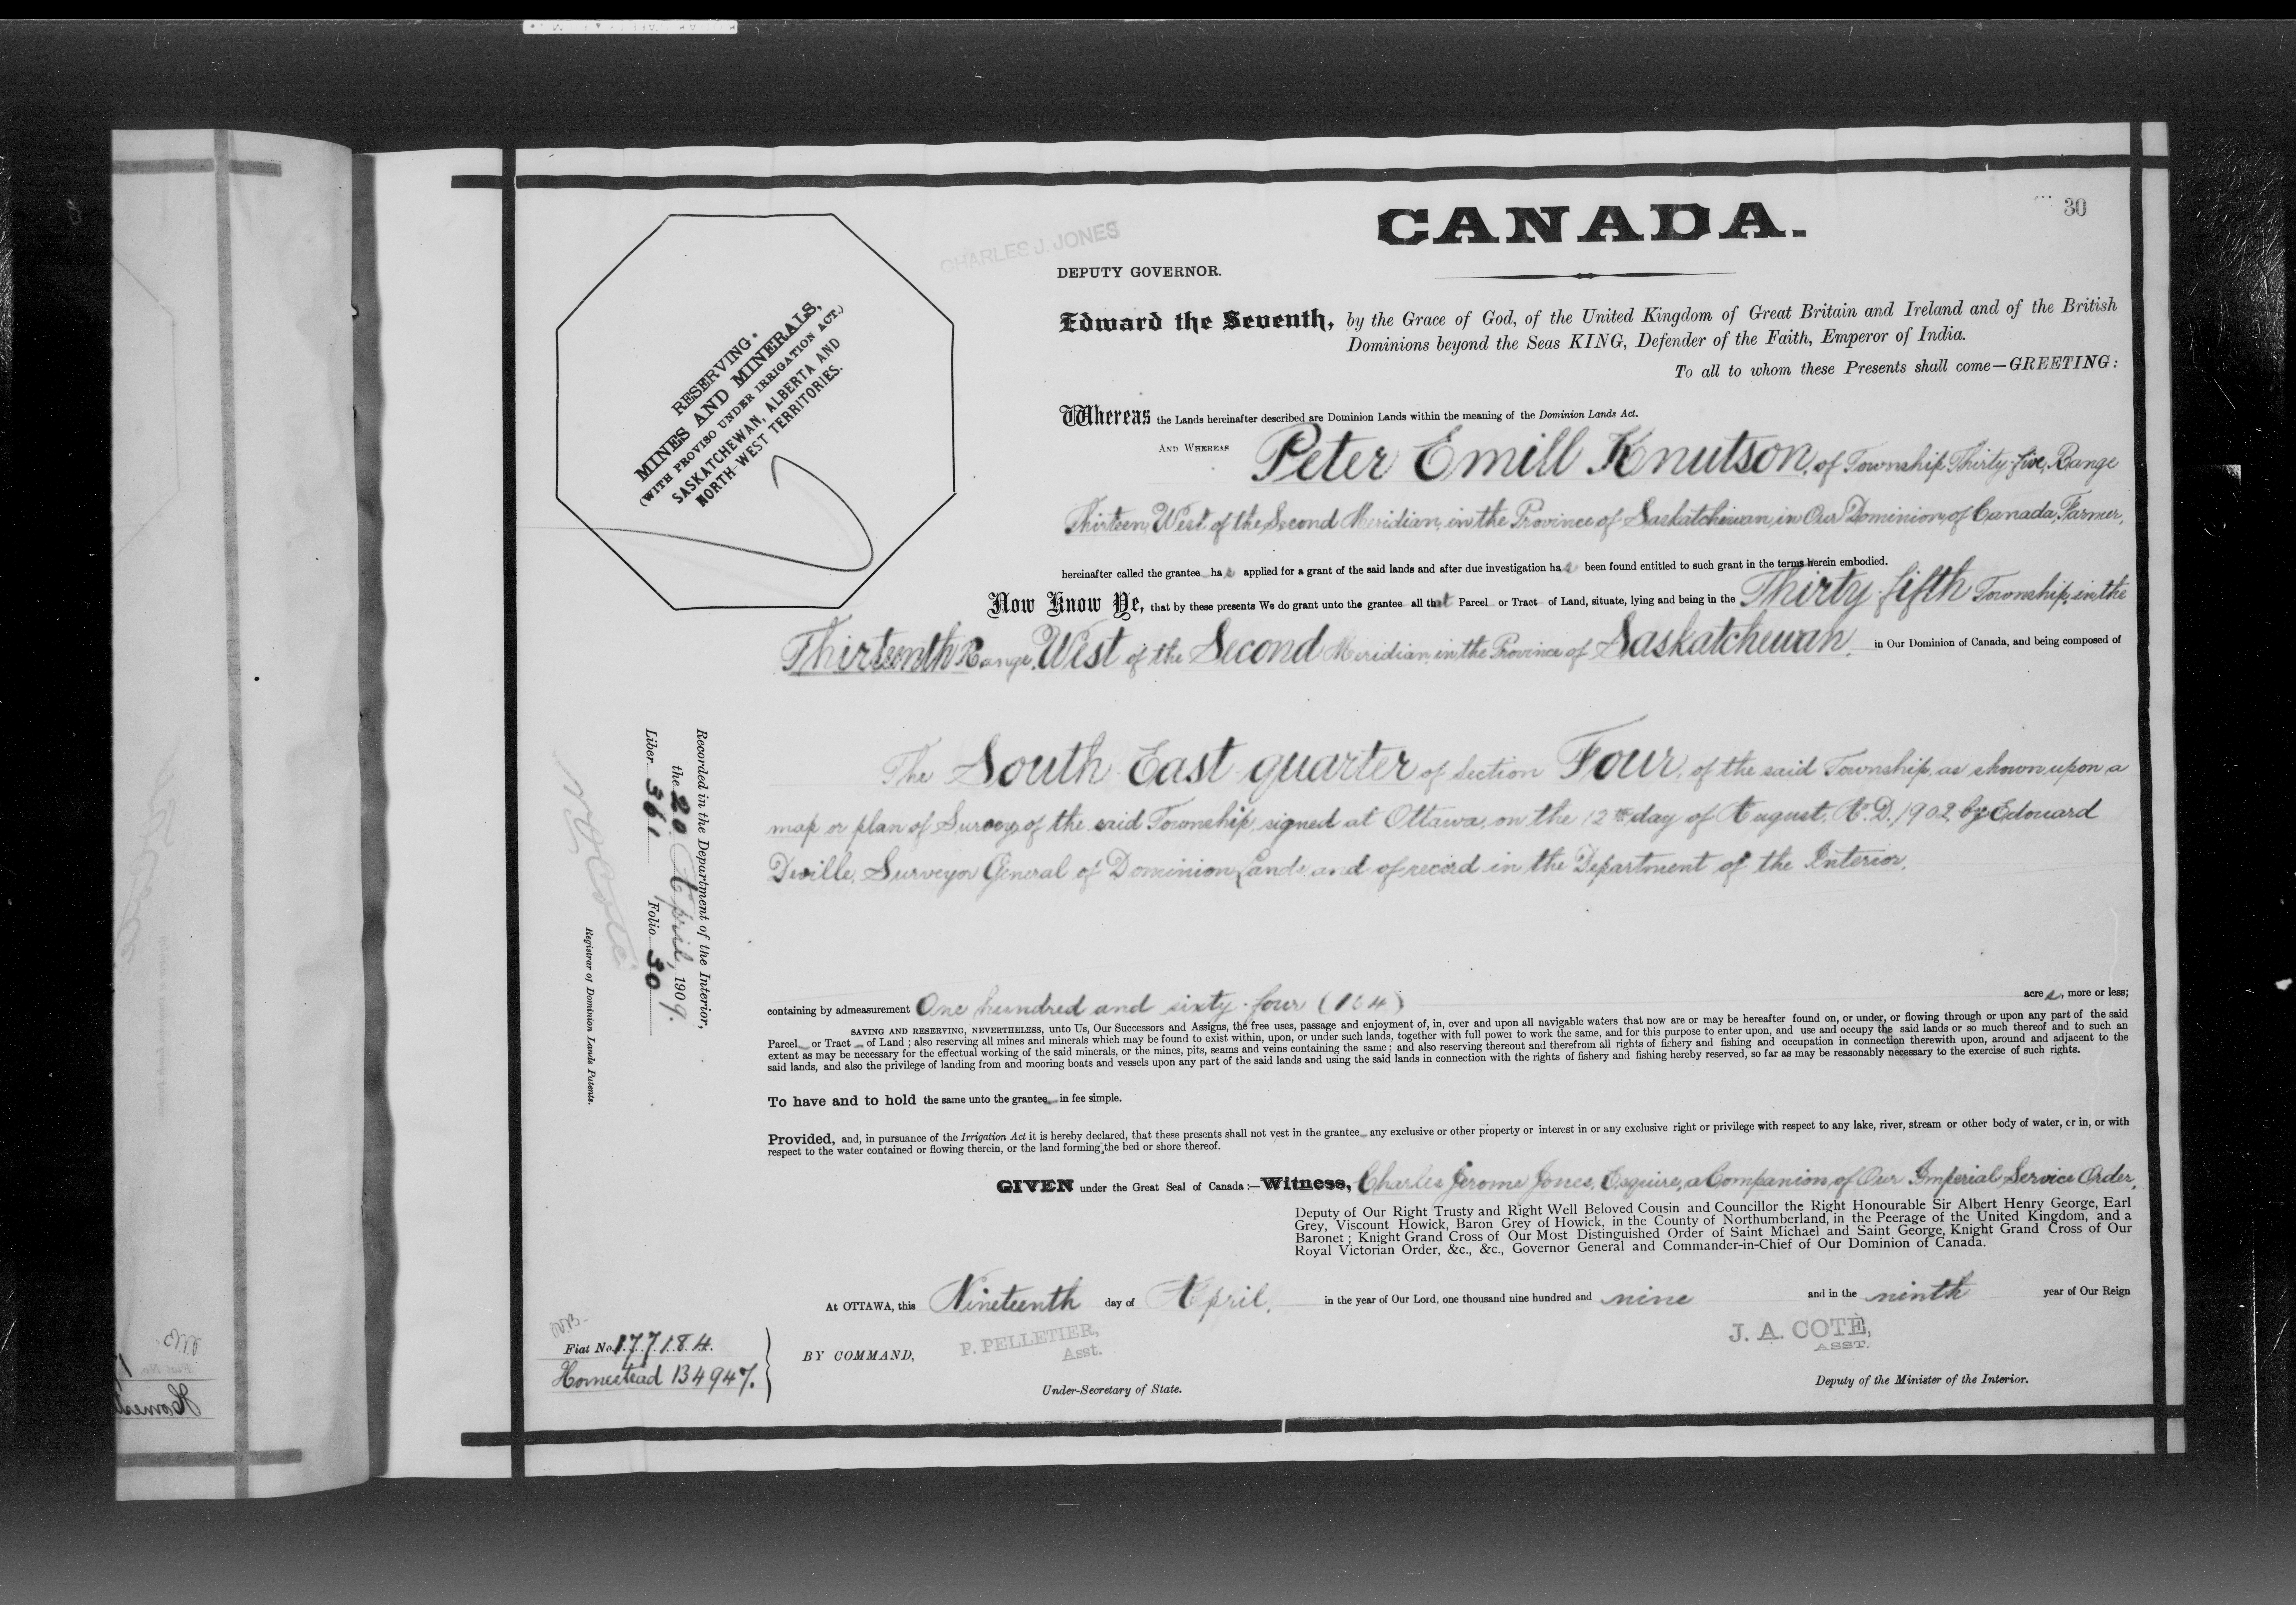 30
CANADA.
CHARLES J. JONES
DEPUTY GOVERNOR.
Edward the Seventh, by the Grace of God, of the United Kingdom of Great Britain and Ireland and of the British
Dominions beyond the Seas KING, Defender of the Faith, Emperor of India.
To all to whom these Presents shall come—GREETING:
RESERVING
MINES AND MINERALS,
(WITH PROVISO UNDER IRRIGATION ACT.)
SASKATCHEWAN, ALBERTA AND
NORTH-WEST TERRITORIES.
Whereas the Lands hereinafter described are Dominion Lands within the meaning of the Dominion Lands Act.
AND WHEREAS Peter Emill Knutson, of Township Thirty-five, Range
Thirteen, West of the Second Meridian, in the Province of Saskatchewan, in Our Dominion of Canada, Farmer,
hereinafter called the grantee has applied for a grant of the said lands and after due investigation has been found entitled to such grant in the terms herein embodied.
Now Know Ye, that by these presents We do grant unto the grantee all that Parcel or Tract of Land, situate, lying and being in the Thirty-fifth Township, in the
Thirteenth Range, West of the Second Meridian, in the Province of Saskatchewan, in Our Dominion of Canada, and being composed of
The South East quarter of section Four, of the said Township, as shown upon a
map or plan of Survey of the said Township, signed at Ottawa, on the 12th day of August, A.D. 1902, by Edouard
Deville, Surveyor General of Dominion Lands, and of record in the Department of the Interior.
Recorded in the Department of the Interior,
the 20 April, 1909.
Liber 361 Folio 30
N O Coté
Registrar of Dominion Lands Patents.
containing by admeasurement One hundred and sixty-four (164) acres, more or less;
SAVING AND RESERVING, NEVERTHELESS, unto Us, Our Successors and Assigns, the free uses, passage and enjoyment of, in, over and upon all navigable waters that now are or may be hereafter found on, or under, or flowing through or upon any part of the said
Parcel or Tract of Land; also reserving all mines and minerals which may be found to exist within, upon, or under such lands, together with full power to work the same, and for this purpose to enter upon, and use and occupy the said lands or so much thereof and to such an
extent as may be necessary for the effectual working of the said minerals, or the mines, pits, seams and veins containing the same; and also reserving thereout and therefrom all rights of fichery and fishing and occupation in connection therewith upon, around and adjacent to the
said lands, and also the privilege of landing from and mooring boats and vessels upon any part of the said lands and using the said lands in connection with the rights of fishery and fishing hereby reserved, so far as may be reasonably necessary to the exercise of such rights.
To have and to hold the same unto the grantee in fee simple.
Provided, and, in pursuance of the Irrigation Act it is hereby declared, that these presents shall not vest in the grantee any exclusive or other property or interest in or any exclusive right or privilege with respect to any lake, river, stream or other body of water, or in, or with
respect to the water contained or flowing therein, or the land forming the bed or shore thereof.
GIVEN under the Great Seal of Canada:—Witness, Charles Jerome Jones, Esquire, a Companion of Our Imperial Service Order,
Deputy of Our Right Trusty and Right Well Beloved Cousin and Councillor the Right Honourable Sir Albert Henry George, Earl
Grey, Viscount Howick, Baron Grey of Howick, in the County of Northumberland, in the Peerage of the United Kingdom, and a
Baronet; Knight Grand Cross of Our Most Distinguished Order of Saint Michael and Saint George, Knight Grand Cross of Our
Royal Victorian Order, &c., &c., Governor General and Commander-in-Chief of Our Dominion of Canada.
At OTTAWA, this Nineteenth day of April, in the year of Our Lord, one thousand nine hundred and nine and in the ninth year of Our Reign
Fiat No. 177184.
Homestead 134947.
BY COMMAND,
P. PELLETIER,
Asst.
Under-Secretary of State.
J. A. COTÉ,
ASST.
Deputy of the Minister of the Interior.